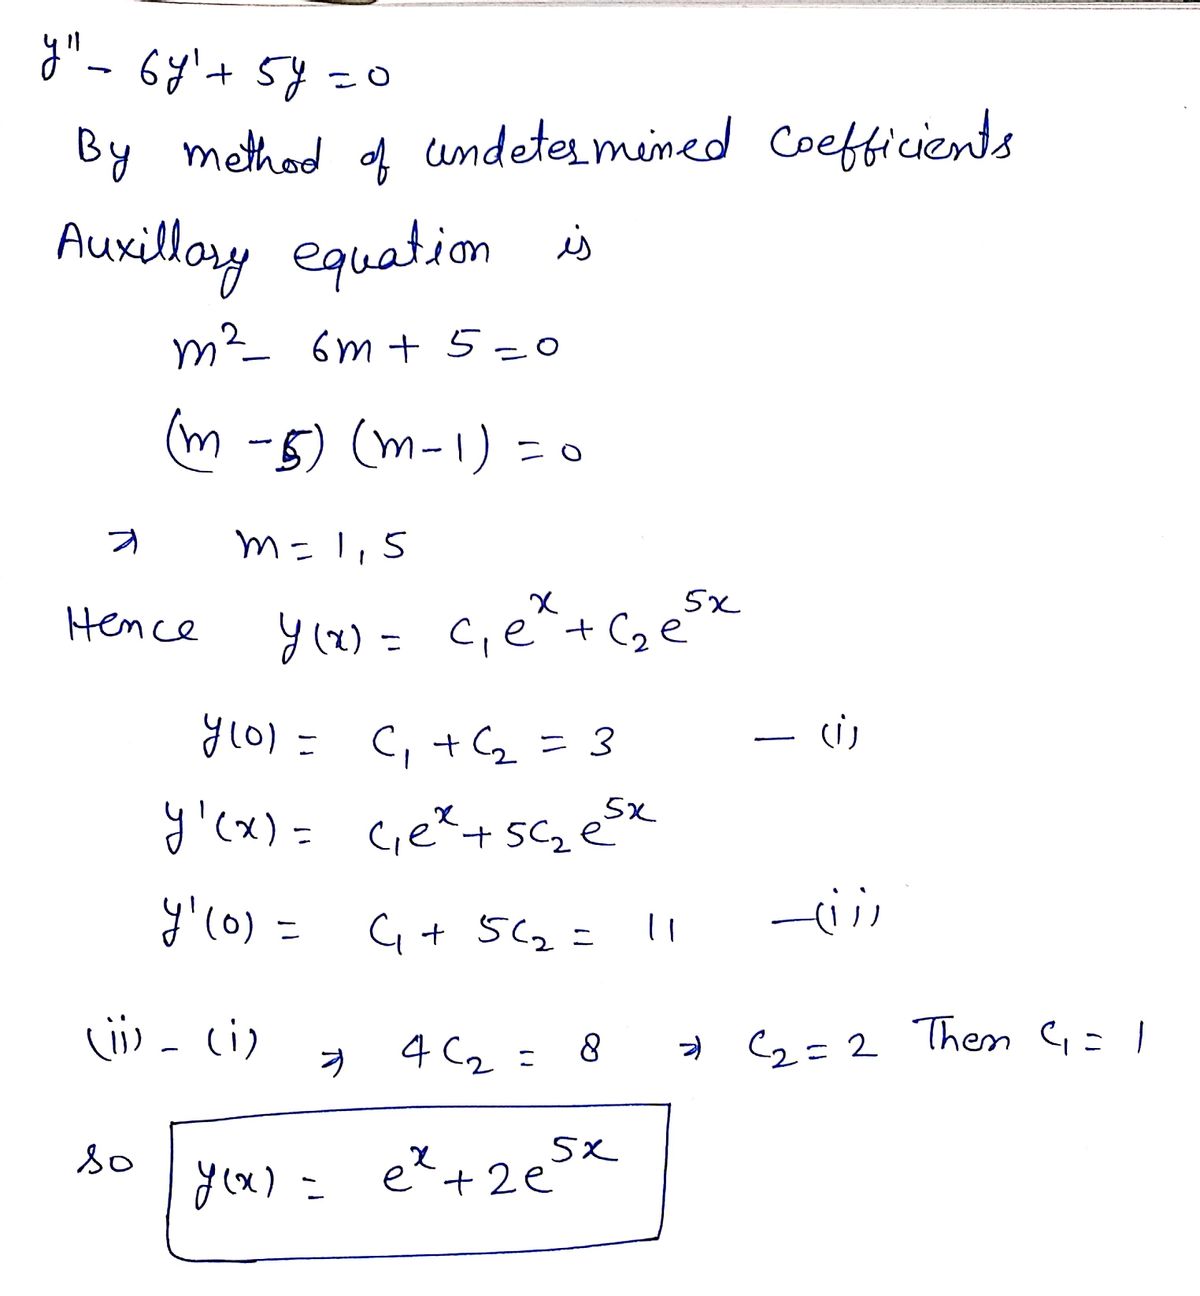 y'' - 6y' + 5y = 0
By method of undetermined coefficients
Auxillary equation is
m² - 6m + 5 = 0
(m - 5) (m - 1) = 0
⇒ m = 1, 5
Hence y(x) = C₁eˣ + C₂e⁵ˣ
y(0) = C₁ + C₂ = 3 — (i)
y'(x) = C₁eˣ + 5C₂e⁵ˣ
y'(0) = C₁ + 5C₂ = 11 — (ii)
(ii) - (i) ⇒ 4C₂ = 8 ⇒ C₂ = 2 Then C₁ = 1
so y(x) = eˣ + 2e⁵ˣ